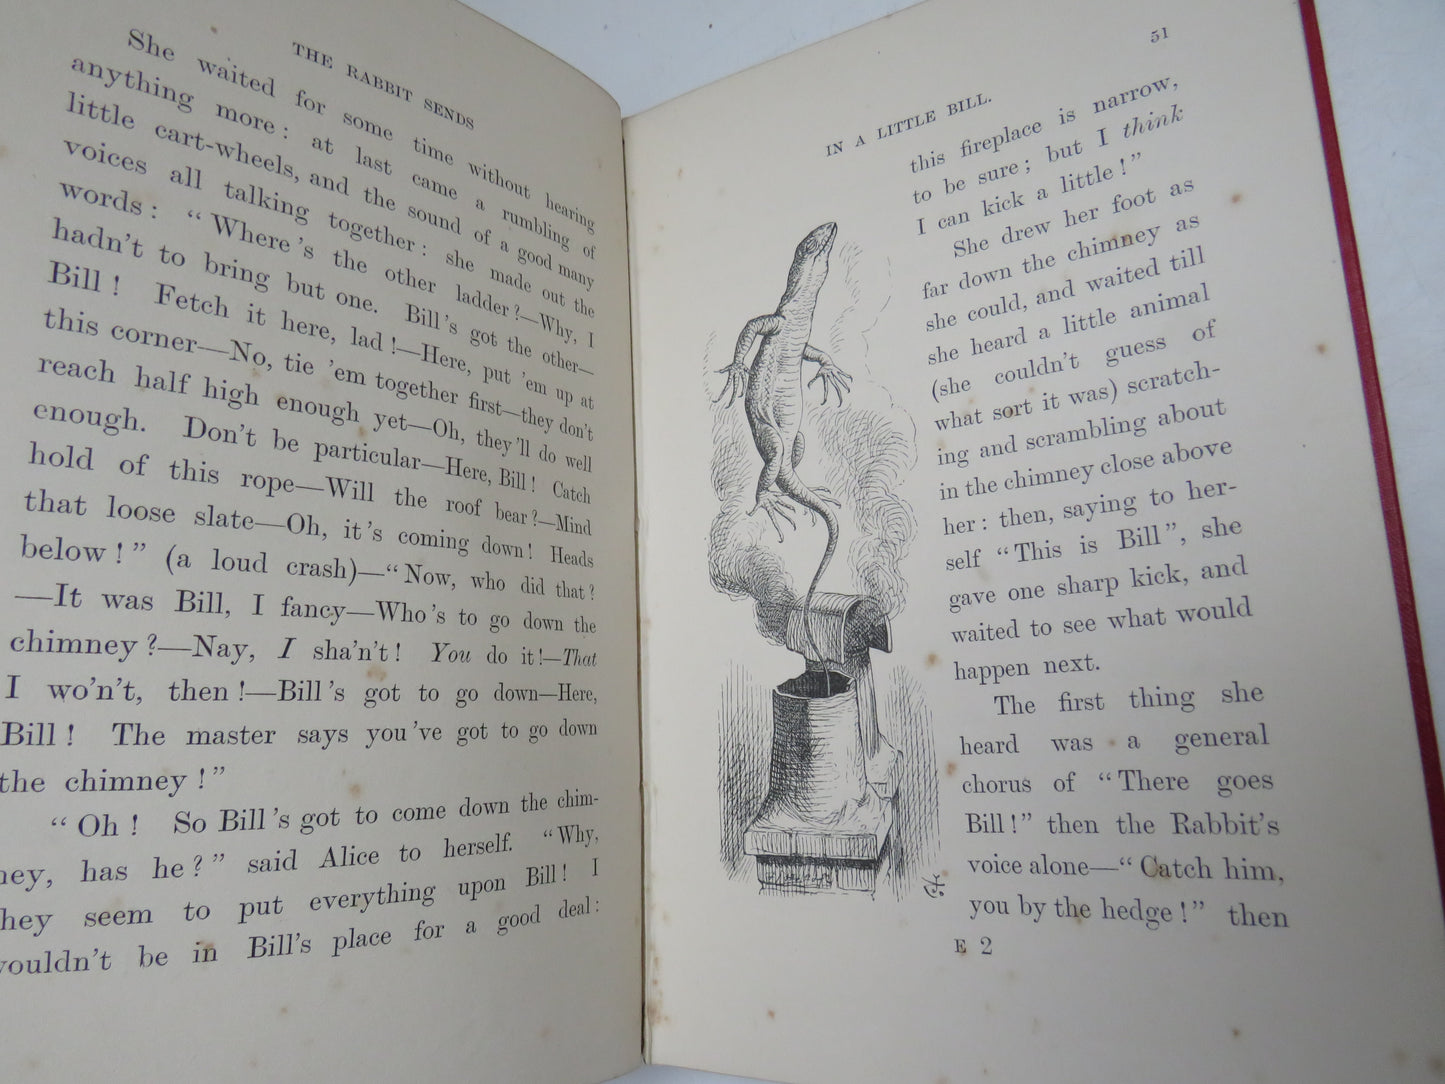 THE RABBIT SENDS
She waited for some time without hearing
anything more: at last came a rumbling of
little cart-wheels, and the sound of a good many
voices all talking together: she made out the
words: “Where’s the other ladder?—Why, I
hadn’t to bring but one. Bill’s got the other—
Bill! Fetch it here, lad!—Here, put ’em up at
this corner—No, tie ’em together first—they don’t
reach half high enough yet—Oh, they’ll do well
enough. Don’t be particular—Here, Bill! Catch
hold of this rope—Will the roof bear?—Mind
that loose slate—Oh, it’s coming down! Heads
below!” (a loud crash)—“Now, who did that?
—It was Bill, I fancy—Who’s to go down the
chimney?—Nay, I sha’n’t! You do it!—That
I wo’n’t, then!—Bill’s got to go down—Here,
Bill! The master says you’ve got to go down
the chimney!”
“Oh! So Bill’s got to come down the chim-
ney, has he?” said Alice to herself. “Why,
they seem to put everything upon Bill! I
wouldn’t be in Bill’s place for a good deal:
51
IN A LITTLE BILL.
this fireplace is narrow,
to be sure; but I think
I can kick a little!”
She drew her foot as
far down the chimney as
she could, and waited till
she heard a little animal
(she couldn’t guess of
what sort it was) scratch-
ing and scrambling about
in the chimney close above
her: then, saying to her-
self “This is Bill”, she
gave one sharp kick, and
waited to see what would
happen next.
The first thing she
heard was a general
chorus of “There goes
Bill!” then the Rabbit’s
voice alone—“Catch him,
you by the hedge!” then
E 2